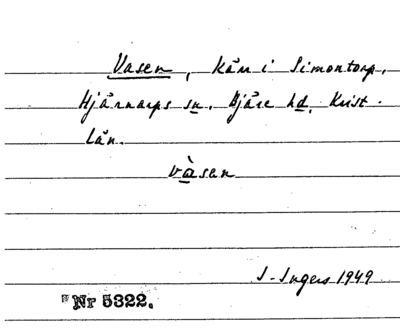 Vasen, kän i Simontorp,
Hjärnarps sn. Bjäre hd. Krist.
län.
vàsen
I. Ingers 1949
Nr 5322.